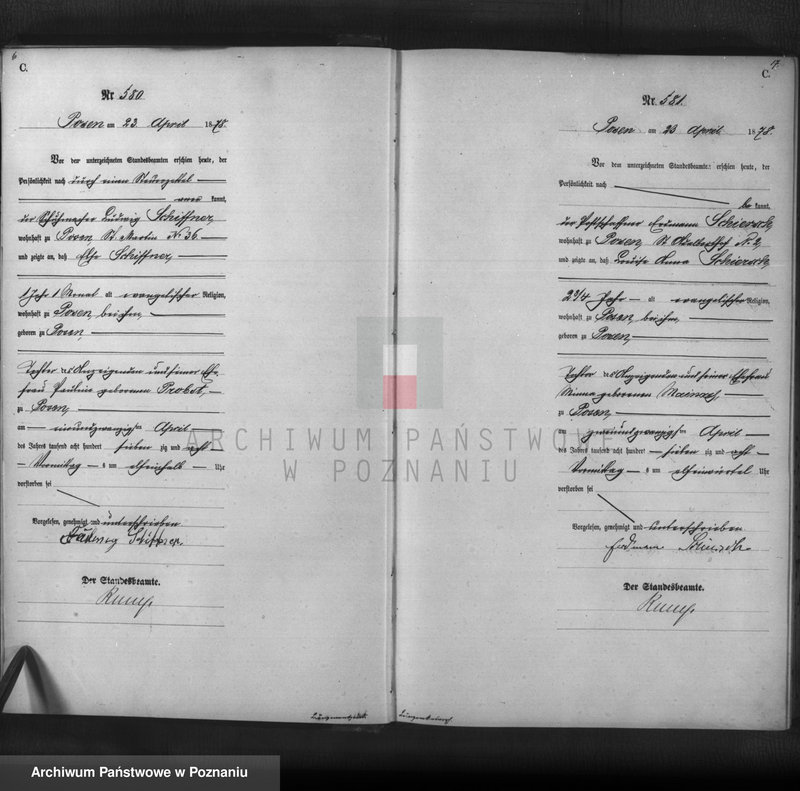 6
C.
Nr 580
Posen am 23 April 1878.
Vor dem unterzeichneten Standesbeamten erschien heute, der
Persönlichkeit nach durch einen Steuerzettel
kannt,
der Schuhmacher Ludwig Schiffner,
wohnhaft zu Posen, St. Martin Nr 36
und zeigte an, daß Schiffner,
1 Jahr 1 Monat alt evangelischer Religion,
wohnhaft zu Posen, bei ihm,
geboren zu Posen,
Tochter des Anzeigenden und seiner Ehe
frau Pauline geborenen Probst,
zu Posen,
am einundzwanzigsten April
des Jahres tausend acht hundert sieben zig und acht
Vormittag um elfeinhalb Uhr
verstorben sei
Vorgelesen, genehmigt und unterschrieben
Ludwig Schiffner
Der Standesbeamte.
7.
C.
Nr. 581.
Posen am 23 April 1878.
Vor dem unterzeichneten Standesbeamten erschien heute, der
Persönlichkeit nach
be kannt,
der Postschaffner Erdmann
wohnhaft zu Posen, St Adalberthof Nr. 2,
und zeigte an, daß Louise Anna
2 3/4 Jahr alt evangelischer Religion,
wohnhaft zu Posen, bei ihm,
geboren zu Posen,
Tochter des Anzeigenden und seiner Ehefrau
Minna geborenen
zu Posen,
am zweiundzwanzigsten April
des Jahres tausend acht hundert sieben zig und acht
Vormittag um elfeinviertel Uhr
verstorben sei
Vorgelesen, genehmigt und unterschrieben
Erdmann
Der Standesbeamte.
ARCHIWUM PAŃSTWOWE
W POZNANIU
Archiwum Państwowe w Poznaniu